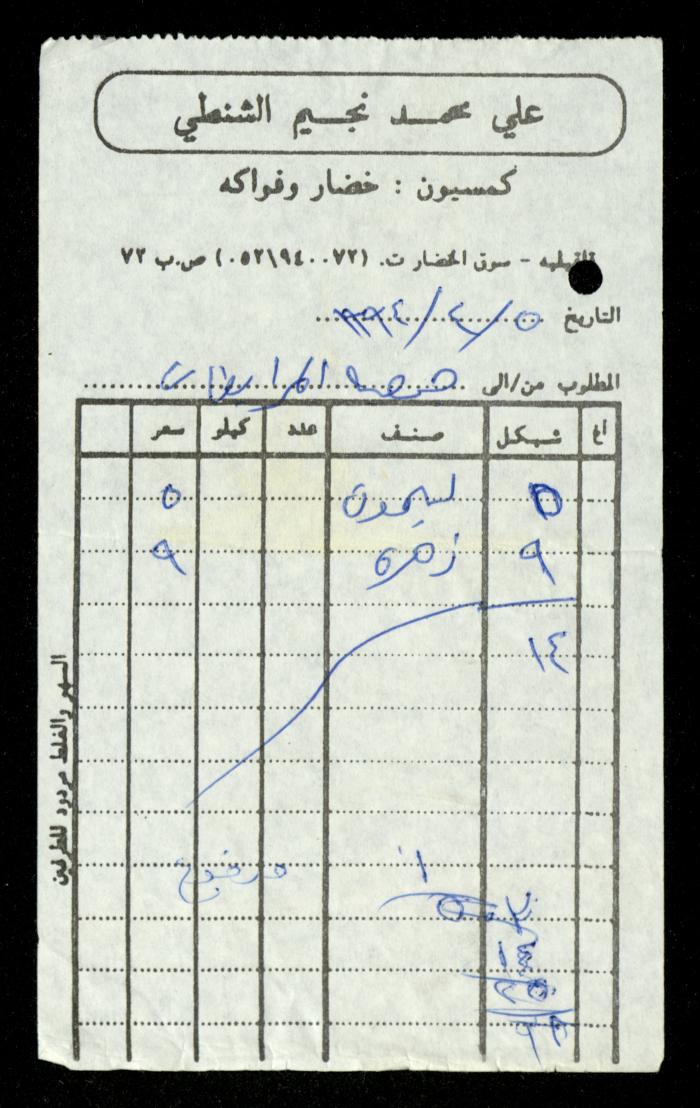 علي محمد نجيم الشنطي
كمسيون : خضار وفواكه
قلقيليه - سوق الخضار ت. (٠٥٢/٩٤٠٠٧٢) ص.ب ٧٢
التاريخ ٥/٢/١٩٩٤
المطلوب من/الى
أغ شيكل صنف عدد كيلو سعر
٥ ليمون ٥
٩ زهرة ٩
١٤
مدفوع
السهو والغلط مردود للطرفين